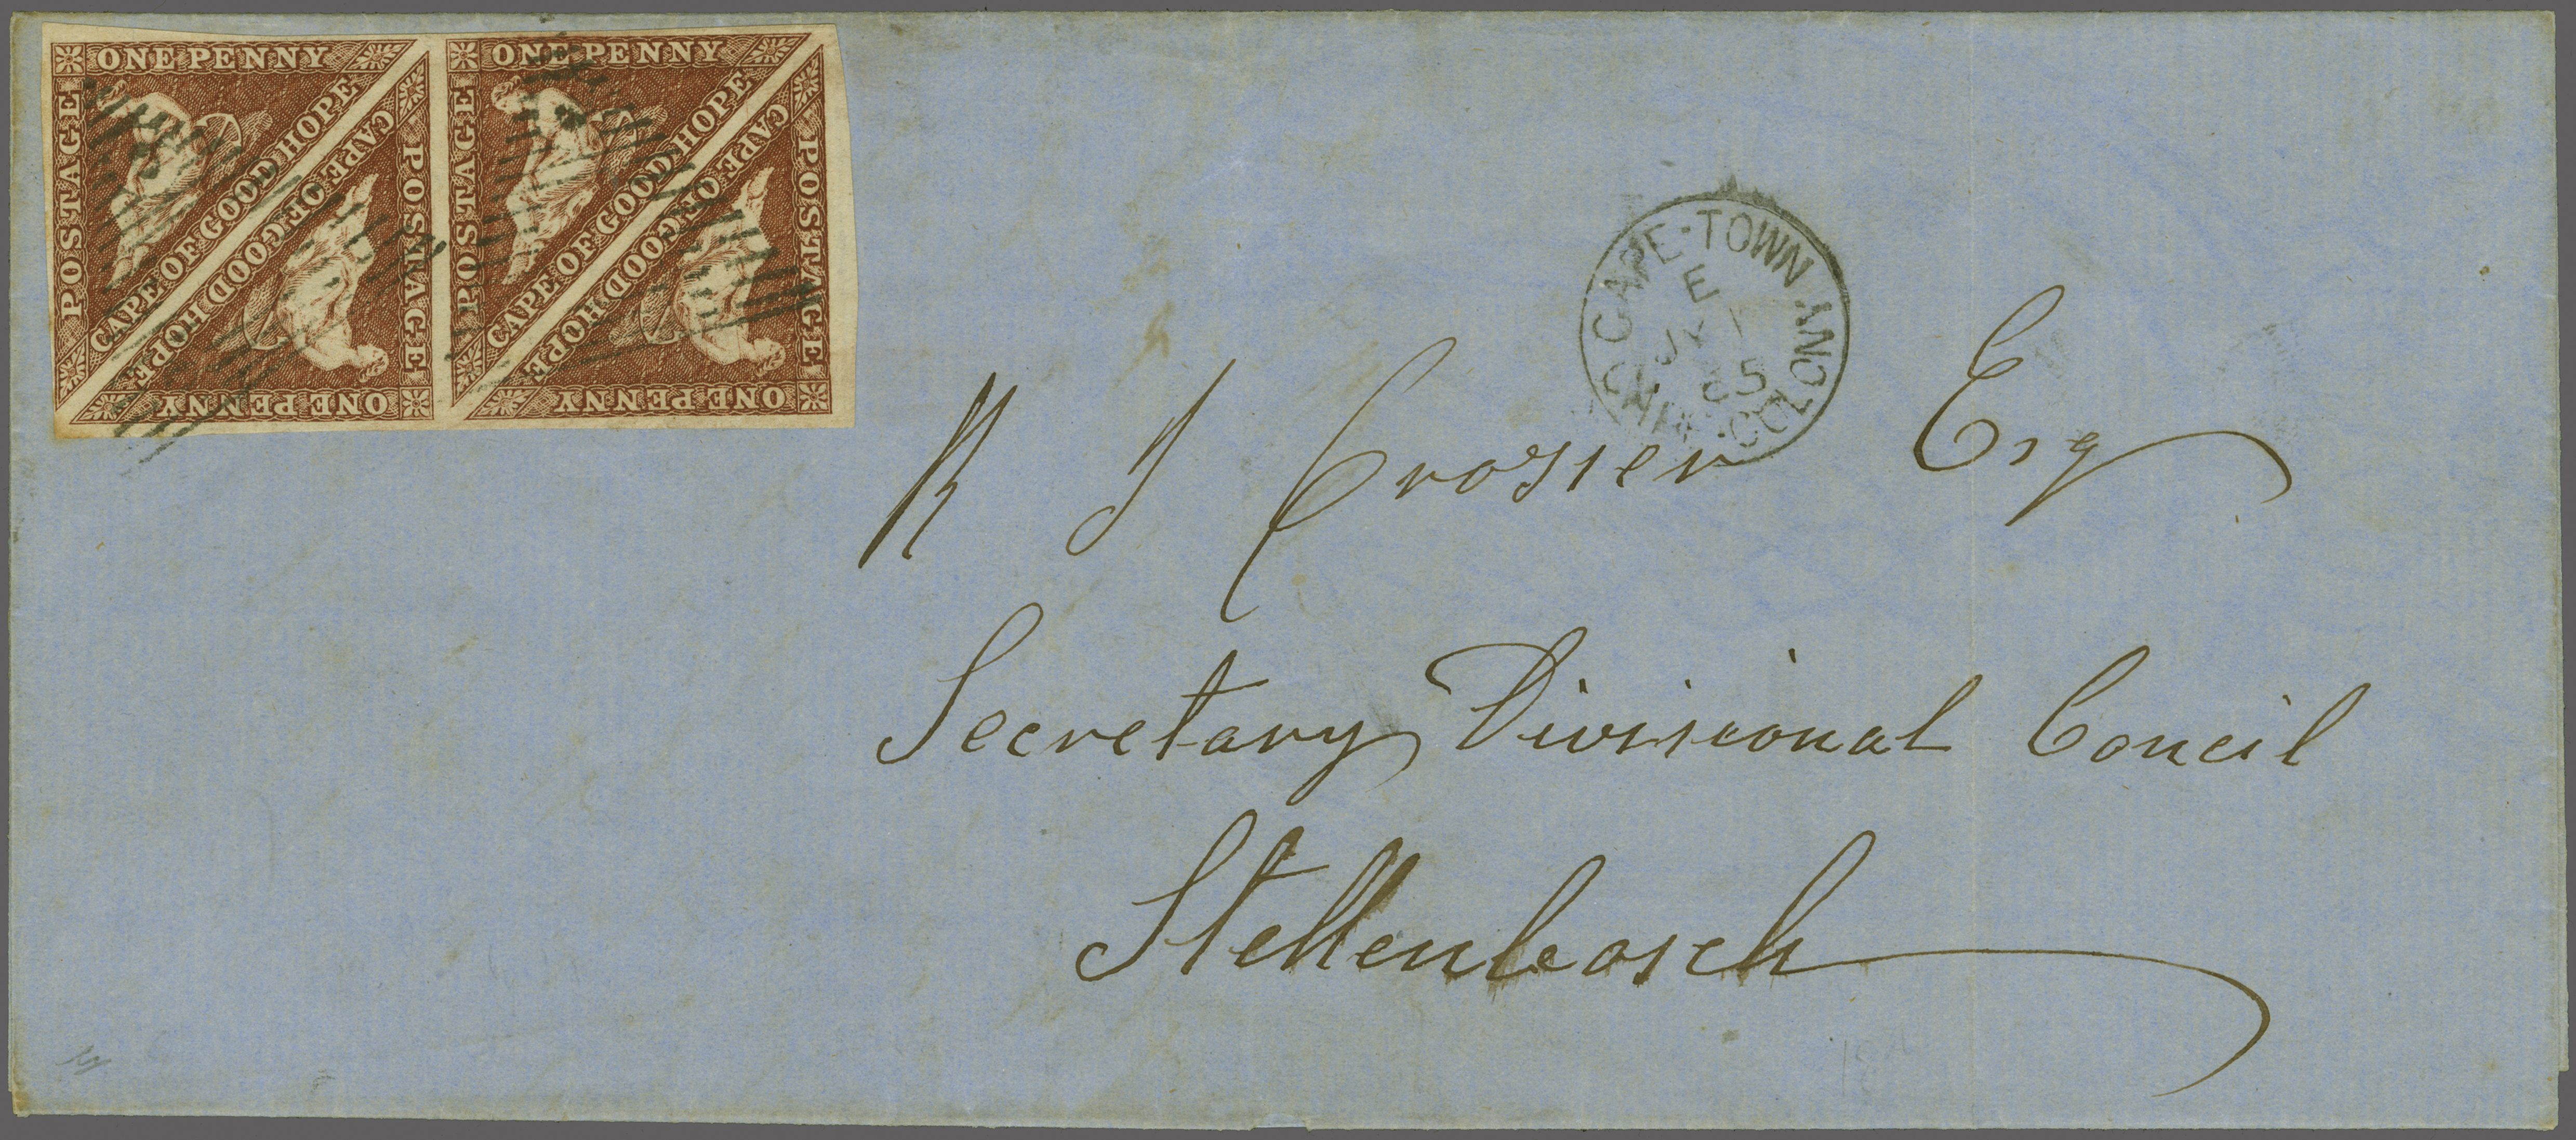 ONE PENNY
POSTAGE
CAPE OF GOOD HOPE
CAPE OF GOOD HOPE
POSTAGE
ONE PENNY
ONE PENNY
POSTAGE
CAPE OF GOOD HOPE
CAPE OF GOOD HOPE
POSTAGE
ONE PENNY
CAPE·TOWN
E
JY 1
65
Crosier Esq
Secretary Divisional Concil
Stellenbosch